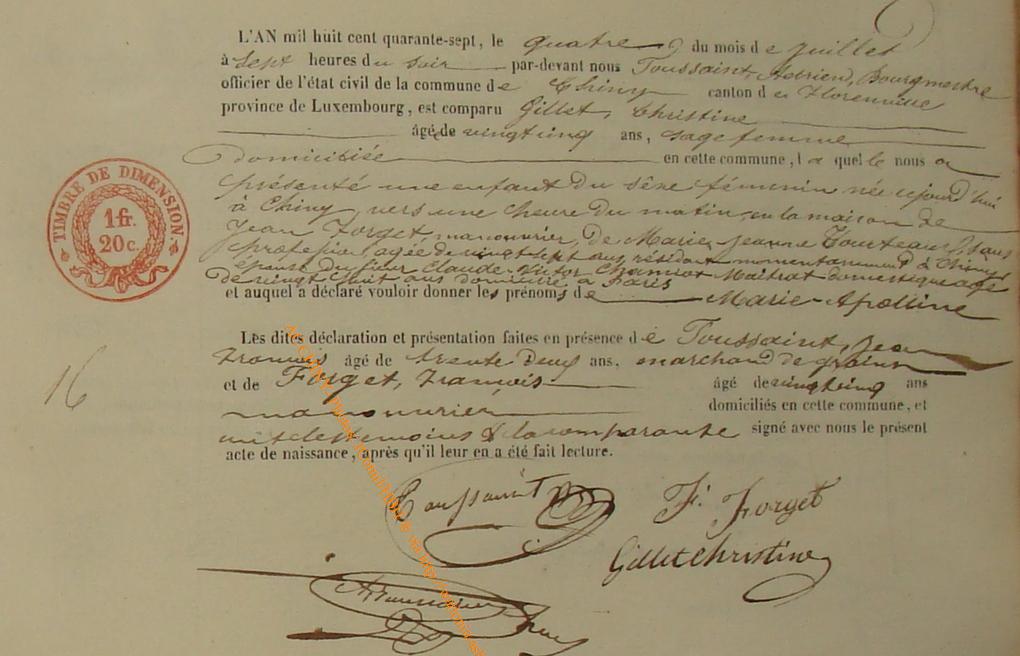 L'AN mil huit cent quarante-sept, le quatre, du mois de juillet
à sept heures du soir par-devant nous Toussaint, Adrien, Bourgmestre
officier de l'état civil de la commune de Chiny canton de Florenville
province de Luxembourg, est comparu Gillet, Christine
âgé de vingt cinq ans, sage femme
domiciliée en cette commune, la quelle nous a
présenté une enfant du sexe féminin née cejourd'hui
à Chiny, vers une heure du matin, en la maison de
Jean Forget manouvrier, de Marie Jeanne sans
profession, agée de vingt sept ans, résidant momentanément à Chiny
épouse du sieur Claude Victor Maitrat domestique agé
de vingt huit ans domicilié à Paris
et auquel a déclaré vouloir donner les prénoms de Marie-Apolline
Les dites déclaration et présentation faites en présence de Toussaint, Jean
François âgé de trente deux ans, marchand de grains
et de Forget, François âgé de vingt cinq ans
manouvrier domiciliés en cette commune, et
ont les témoins & la comparante signé avec nous le présent
acte de naissance, après qu'il leur en a été fait lecture.
16
TIMBRE DE DIMENSION
1 fr.
20 c.
Toussaint
F. Forget
Gillet Christine